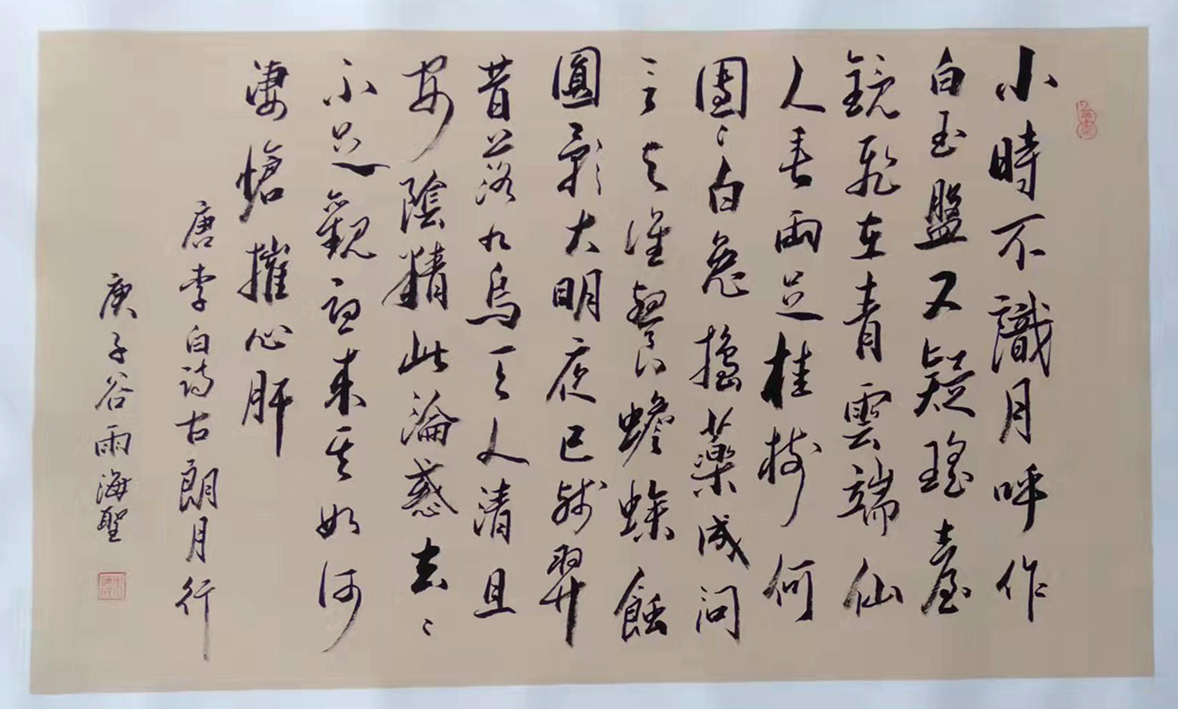 小時不識月呼作
白玉盤又疑瑤臺
鏡飛在青雲端仙
人垂兩足桂樹何
團〻白兔搗藥成問
言与誰餐蟾蜍蝕
圓影大明夜已殘羿
昔落九烏天人清且
安陰精此淪惑去〻
不足觀憂來其如何
淒愴摧心肝
唐李白詩古朗月行
庚子谷雨海聖